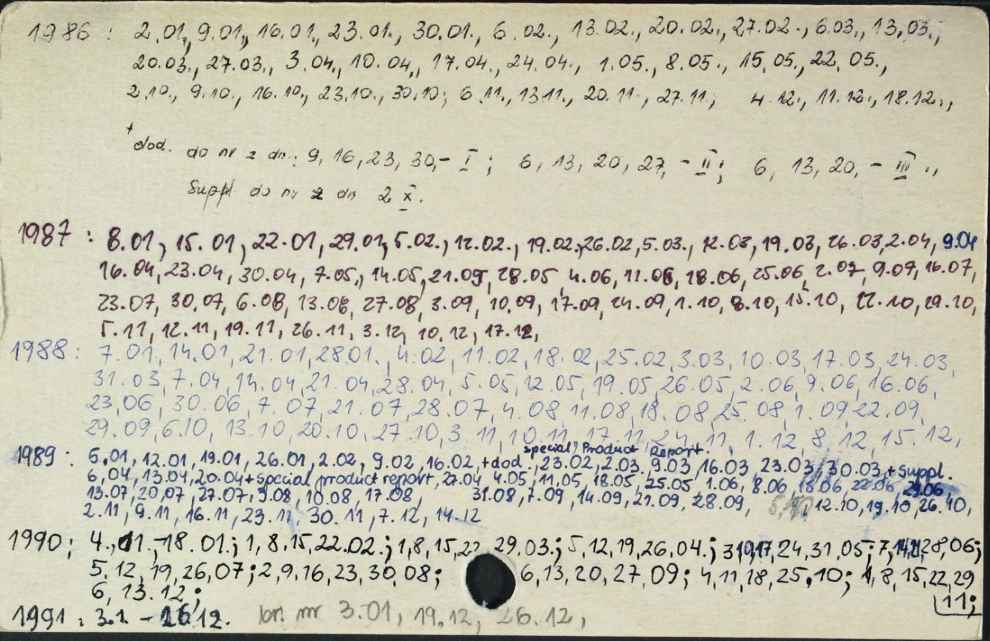 1986 : 2.01, 9.01, 16.01, 23.01., 30.01., 6.02., 13.02., 20.02., 27.02., 6.03., 13.03.,
20.03., 27.03., 3.04., 10.04., 17.04., 24.04., 1.05., 8.05., 15.05., 22.05.,
2.10., 9.10., 16.10., 23.10., 30.10; 6.11., 13.11., 20.11., 27.11; 4.12., 11.12., 18.12.,
+ dod. do nr z dn.: 9, 16, 23, 30, - I ; 6, 13, 20, 27, - II ; 6, 13, 20, - III .,
Suppl do nr z dn 2 X.
1987 : 8.01, 15.01, 22.01, 29.01, 5.02., 12.02., 19.02, 26.02, 5.03., 12.03, 19.03, 26.03, 2.04, 9.04
16.04, 23.04, 30.04, 7.05, 14.05, 21.05, 28.05, 4.06, 11.06, 18.06, 25.06, 2.07, 9.07, 16.07,
23.07, 30.07, 6.08, 13.08, 27.08, 3.09, 10.09, 17.09, 24.09, 1.10, 8.10, 15.10, 22.10, 29.10,
5.11, 12.11, 19.11, 26.11, 3.12, 10.12, 17.12,
1988 : 7.01, 14.01, 21.01, 28.01., 4.02, 11.02, 18.02, 25.02, 3.03, 10.03, 17.03, 24.03,
31.03, 7.04, 14.04, 21.04, 28.04, 5.05, 12.05, 19.05, 26.05, 2.06, 9.06, 16.06,
23.06, 30.06, 7.07, 21.07, 28.07, 4.08, 11.08, 18.08, 25.08, 1.09, 22.09,
29.09, 6.10, 13.10, 20.10, 27.10, 3.11, 10.11, 17.11, 24.11, 1.12, 8.12, 15.12,
special Product Report.
1989 : 5.01, 12.01, 19.01, 26.01, 2.02, 9.02, 16.02, + dod., 23.02, 2.03, 9.03, 16.03, 23.03, 30.03, + Suppl.
6.04, 13.04, 20.04 + special product report, 27.04, 4.05, 11.05, 18.05, 25.05, 1.06, 8.06, 15.06, 22.06, 29.06,
13.07, 20.07, 27.07, 3.08, 10.08, 17.08, 31.08, 7.09, 14.09, 21.09, 28.09, 12.10, 19.10, 26.10,
2.11, 9.11, 16.11, 23.11, 30.11, 7.12, 14.12
1990 ; 4., 11. - 18.01.; 1, 8, 15, 22.02.; 1, 8, 15, 22, 29.03.; 5, 12, 19, 26, 04.; 3, 10, 17, 24, 31, 05; 7, 14, 21, 28, 06;
5, 12, 19, 26, 07; 2, 9, 16, 23, 30, 08; 6, 13, 20, 27, 09; 4, 11, 18, 25, 10; 1, 8, 15, 22, 29
11;
6, 13.12;
1991 : 3.1 - 26.12. nr 3.01, 19.12, 26.12,